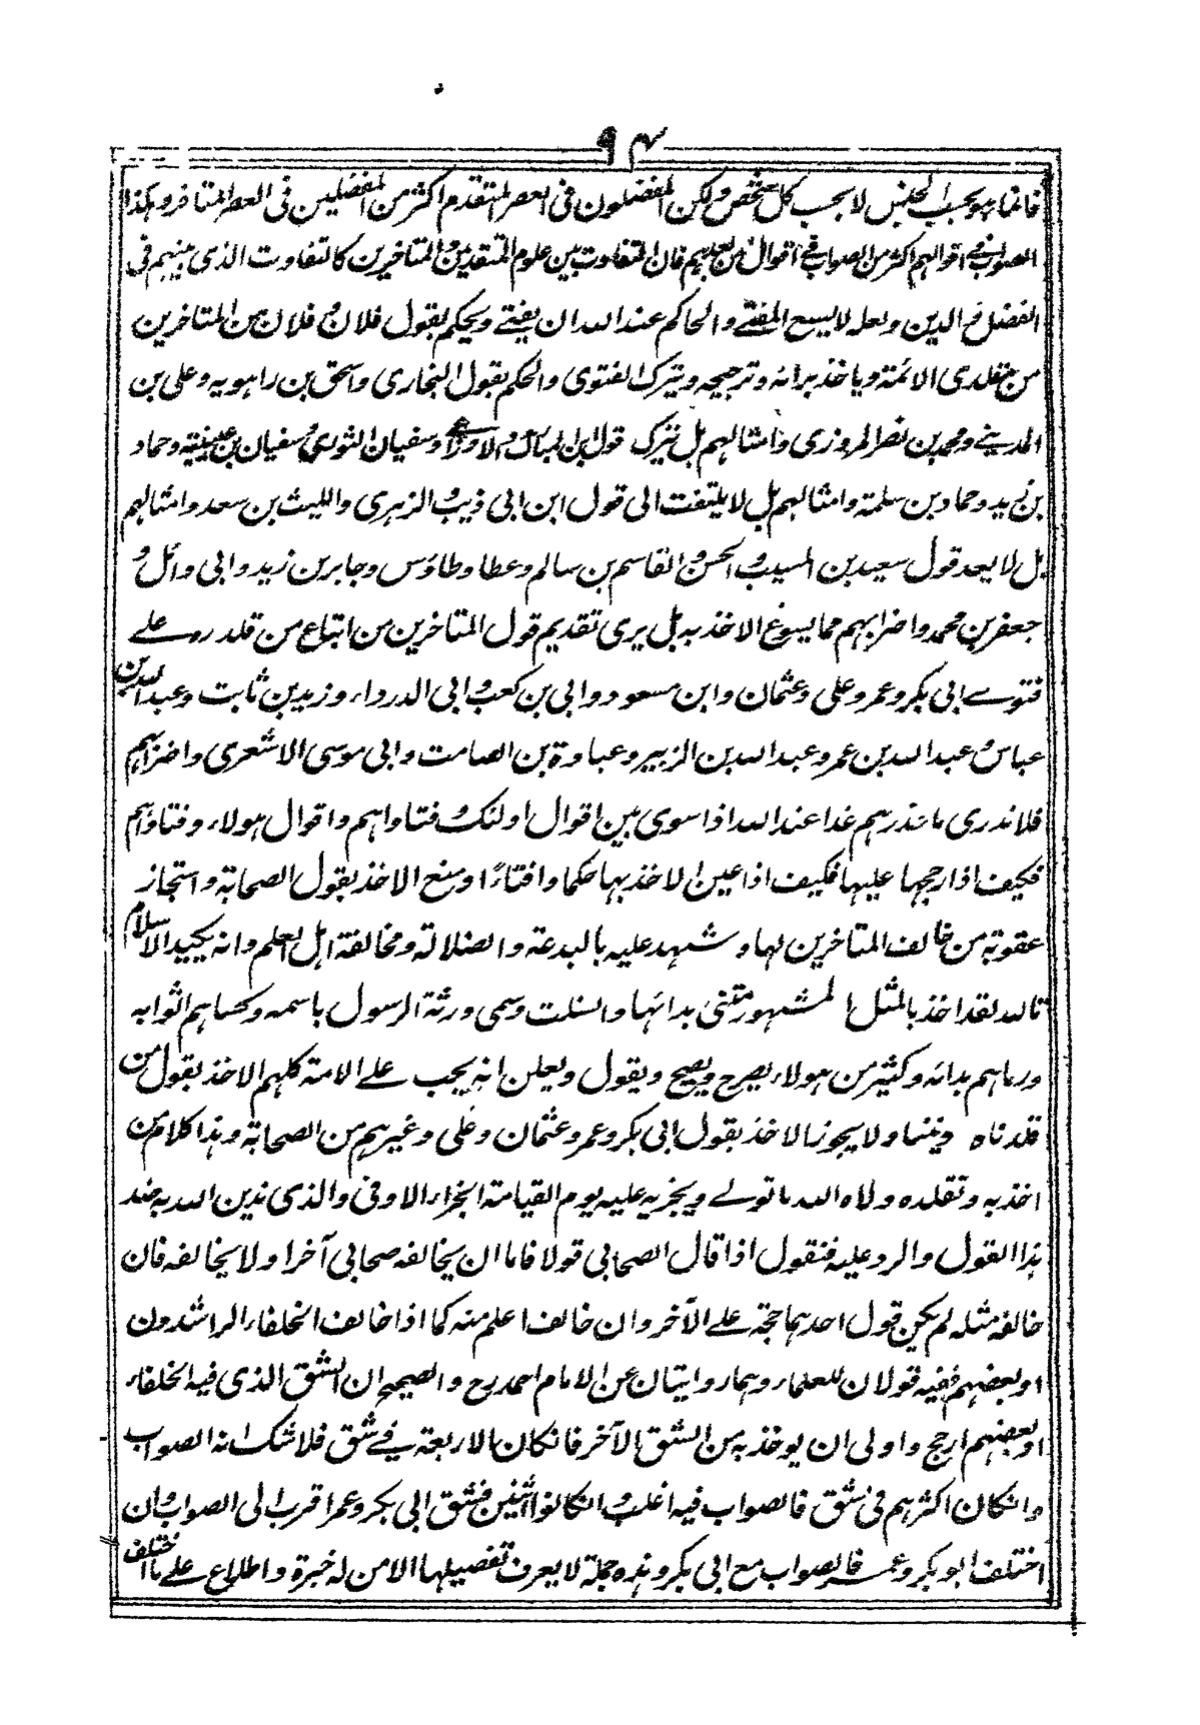 ۹۴
فانما هو بحسب الجنس لا بحسب كل شخص ولكن المفضلون فى العصر المتقدم اكثر من المفضلين فى العصر المتاخر وهكذا
الصواب فى اقوالهم اكثر من الصواب فى اقوال من بعدهم فان التفاوت بين علوم المتقدمين والمتاخرين كالتفاوت الذى بينهم فى
الفضل والدين ولعله لا يسع المفتے والحاكم عند الله ان يفتے ويحكم بقول فلان وفلان من المتاخرين
من مقلدى الائمة وياخذ برائه وترجيحه ويترك الفتوى والحكم بقول البخارى واسحق بن راهويه وعلى بن
المدينے ومحمد بن نصر المروزى وامثالهم بل يترك قول ابن المبارك والاوزاعے وسفيان الثورى وسفيان بن عيينة وحماد
بن زيد وحماد بن سلمة وامثالهم بل لا يلتفت الى قول ابن ابى ذيب والزهرى والليث بن سعد وامثالهم
بل لا يعد قول سعيد بن المسيب والحسن والقاسم بن سالم وعطا وطاؤس وجابر بن زيد وابى وائل و
جعفر بن محمد واضرابهم مما يسوغ الاخذ به بل يرى تقديم قول المتاخرين من اتباع من قلده علے
فتوے ابى بكر وعمر وعلى وعثمان وابن مسعود وابى بن كعب وابى الدرداء وزيد بن ثابت وعبد الله بن
عباس وعبد الله بن عمر وعبد الله بن الزبير وعبادة بن الصامت وابى موسى الاشعرى واضرابهم
فلا ندرى ما عذرهم غدا عند الله اذا سوى بين اقوال اولئك وفتاواهم واقوال هولاء وفتاواهم
فكيف اذا رجحها عليها فكيف اذا عين الاخذ بها حكما وافتاءً او منع الاخذ بقول الصحابة واستجاز
عقوبة من خالف المتاخرين لها وشهد عليه بالبدعة والضلالة ومخالفة اهل العلم وانه يكيد الاسلام
تالله لقد اخذ بالمثل المشهور رمتنى بدائها وانسلت وسمى ورثة الرسول باسمه وكساهم اثوابه
ورماهم بدائه وكثير من هولاء يصرح ويصيح ويقول ويعلن انه يجب علے الامة كلهم الاخذ بقول من
قلدناه ديننا ولا يجوز الاخذ بقول ابى بكر وعمر وعثمان وعلى وغيرهم من الصحابة وهذا كلام من
اخذ به وتقلده ولاه الله ما تولے ويجزيه عليه يوم القيامة الجزاء الاوفى والذى ندين الله به ضد
هذا القول والرد عليه فنقول اذا قال الصحابى قولا فاما ان يخالفه صحابى آخر او لا يخالفه فان
خالفه مثله لم يكن قول احدهما حجة علے الآخر وان خالف اعلم منه كما اذا خالف الخلفاء الراشدون
او بعضهم ففيه قولان للعلماء وهما روايتان عن الامام احمد رح والصحيح ان الشق الذى فيه الخلفاء
او بعضهم ارجح واولى ان يوخذ به من الشق الآخر فان كان الاربعة فے شق فلا شك انه الصواب
وان كان اكثرهم فى شق فالصواب فيه اغلب وان كانوا اثنين فشق ابى بكر وعمر اقرب الى الصواب وان
اختلف ابو بكر وعمر فالصواب مع ابى بكر وهذه جملة لا يعرف تفصيلها الا من له خبرة واطلاع علے ما اختلف